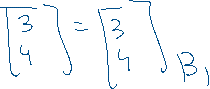 [3 4] = [3 4] B₁